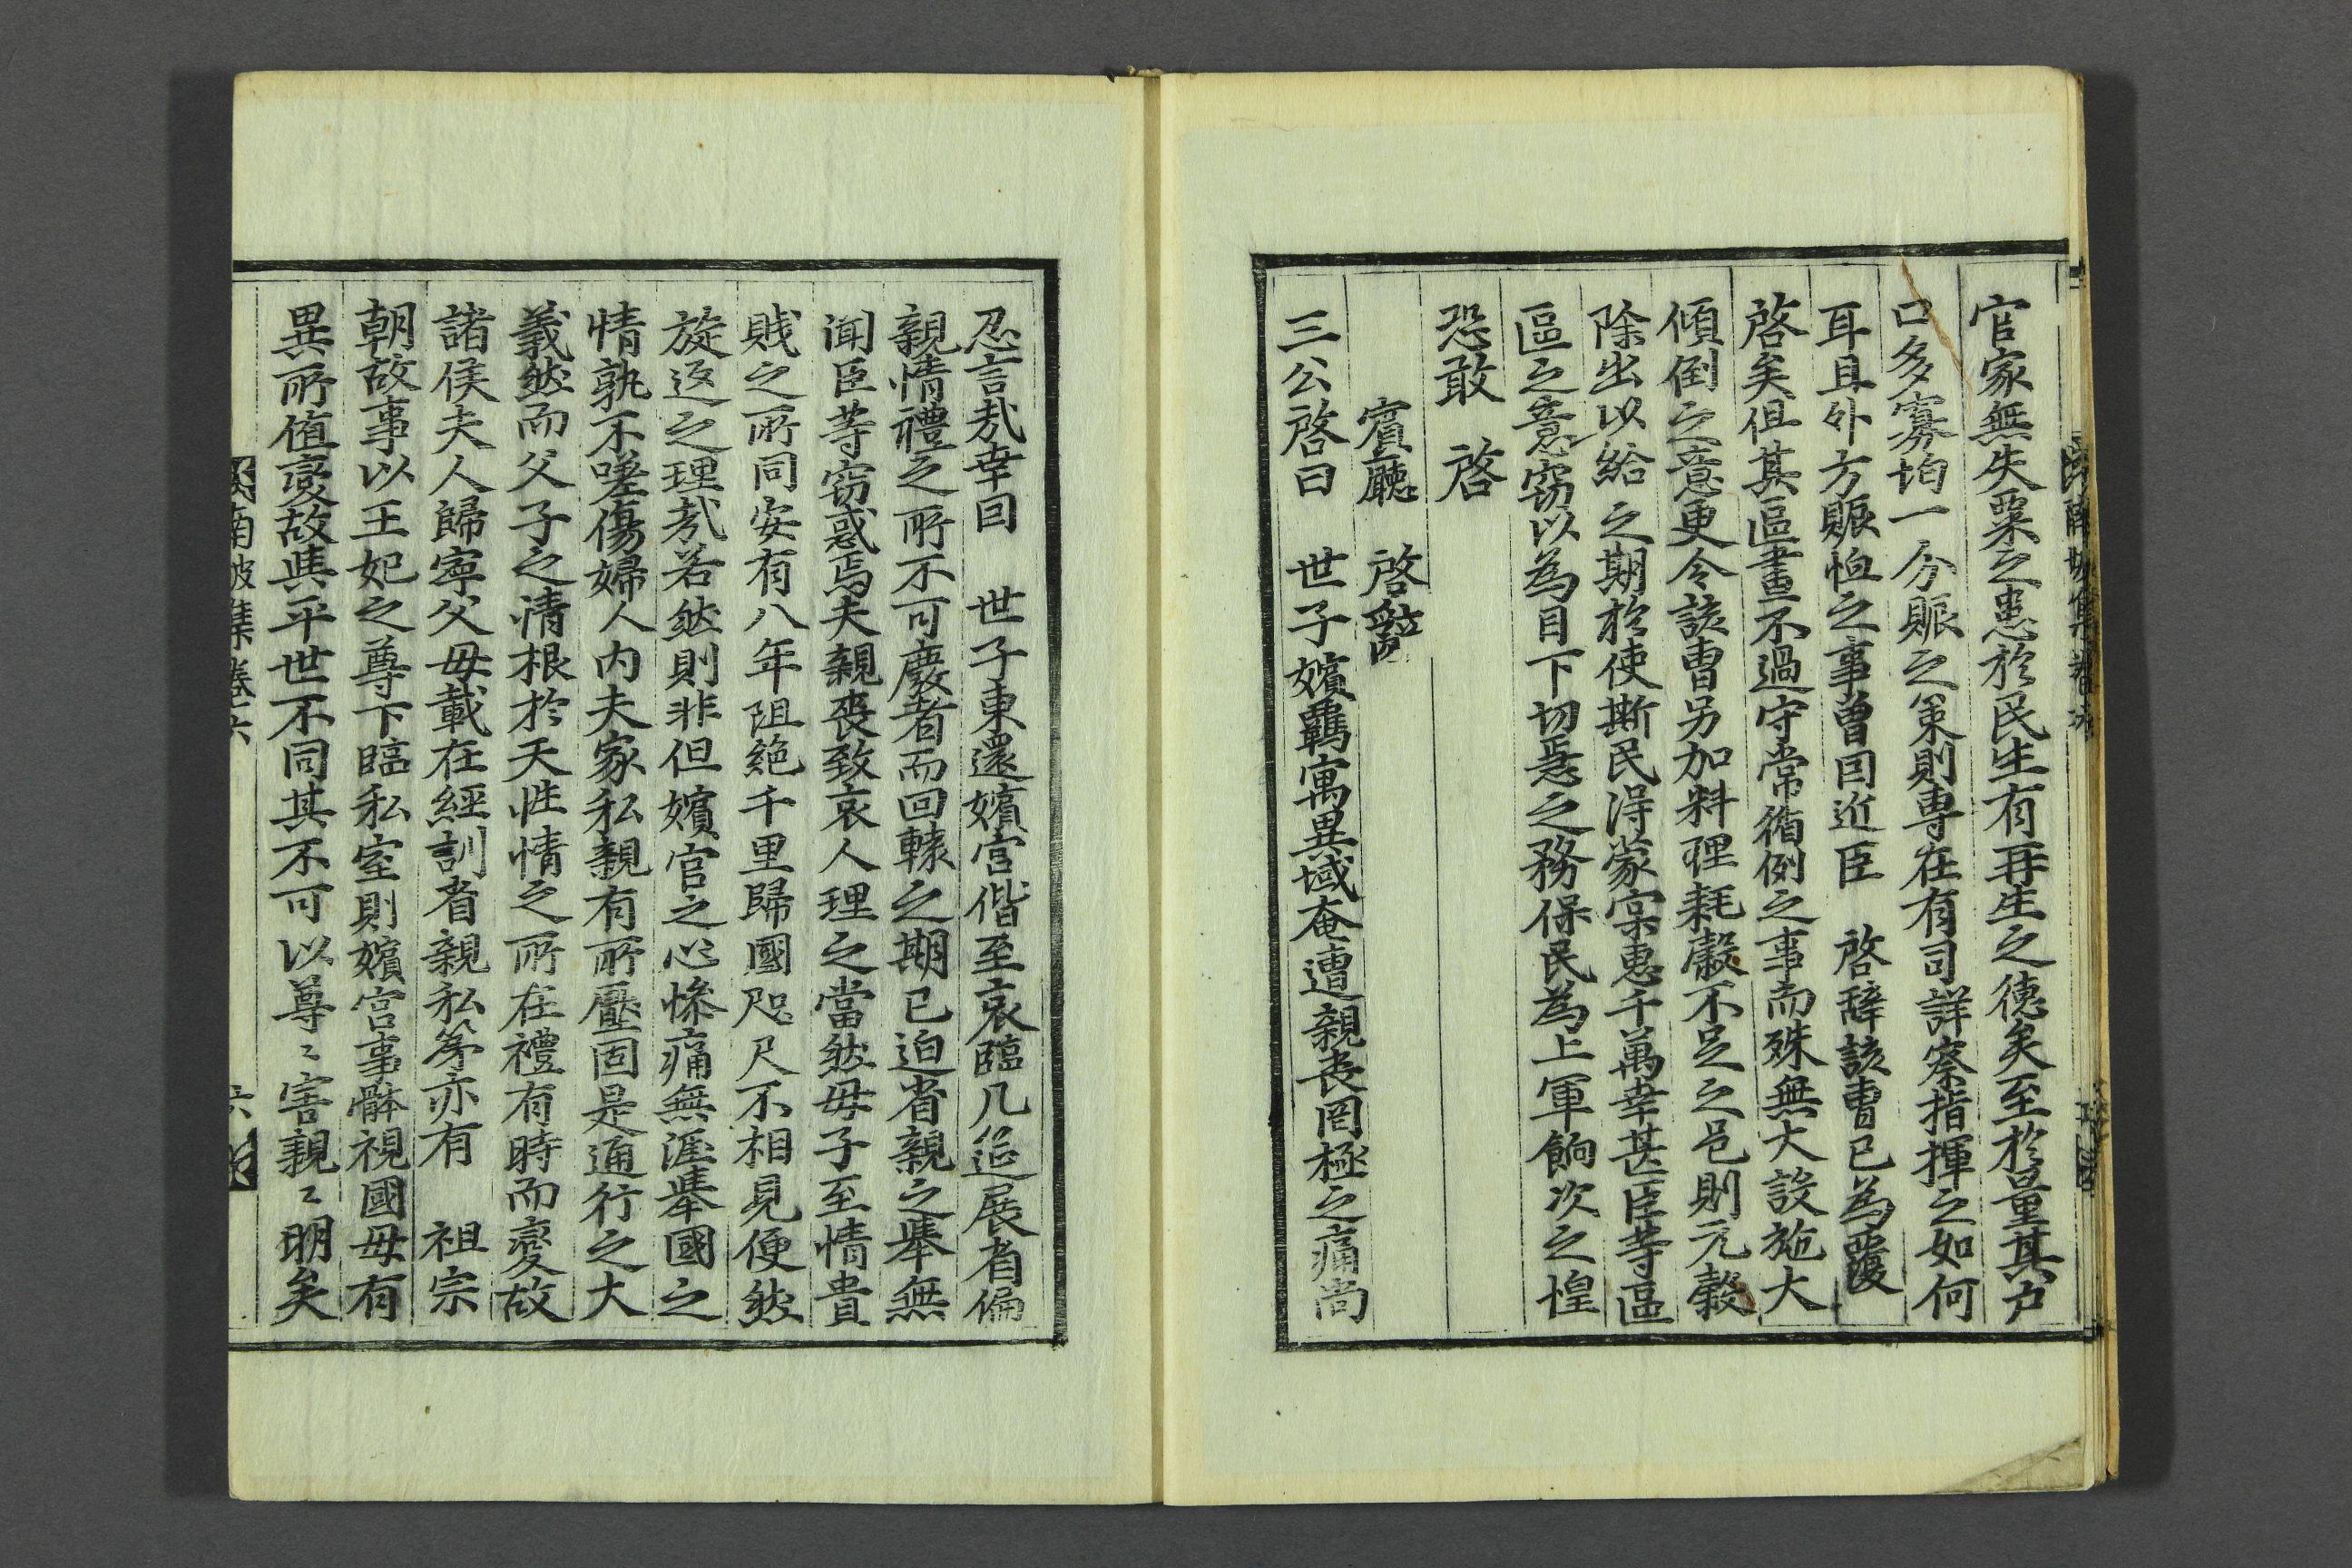 官家無失粟之患於民生有再生之德矣至於量其户
口多寡均一分賑之策則專在有司詳察指揮之如何
耳且外方賑恤之事曾因近臣 啓辭該曹已為覆
啓矣但其區畫不過守常循例之事而殊無大設施大
傾倒之意更令該曹另加料理耗穀不足之邑則元穀
除出以給之期於使斯民得蒙宲惠千萬幸甚臣等區
區之意窃以為目下切急之務保民為上軍餉次之惶
恐敢 啓
賓廳 啓辭
三公啓曰 世子嬪羈寓異域奄遭親喪罔極之痛尚
忍言㢤幸因 世子東還嬪宮偕至哀臨几筵展省偏
親情禮之所不可廢者而回轅之期已迫省親之擧無
闻臣等窃惑焉夫親喪致哀人理之當然毋子至情貴
賎之所同安有八年阻絶千里歸國咫尺不相見便然
旋返之理㢤若然則非但嬪宫之心慘痛無涯擧國之
情孰不嗟傷婦人内夫家私親有所壓固是通行之大
義然而父子之情根於天性情之所在禮有時而變故
諸侯夫人歸寧父毋載在經訓省親私第亦有 祖宗
朝故事以王妃之尊下臨私室則嬪宫事體視國毋有
異所值變故與平世不同其不可以尊〻害親〻明矣
南坡集卷六 六